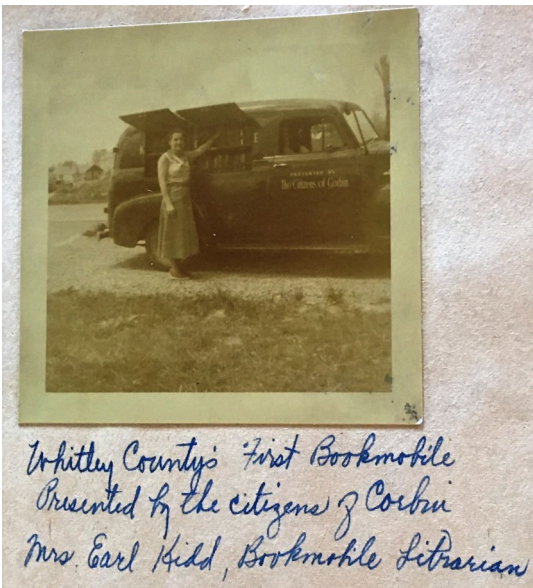 PRESENTED BY
The Citizens of Corbin
Whitley County's First Bookmobile
Presented by the citizens of Corbin
Mrs. Earl Kidd, Bookmobile Librarian